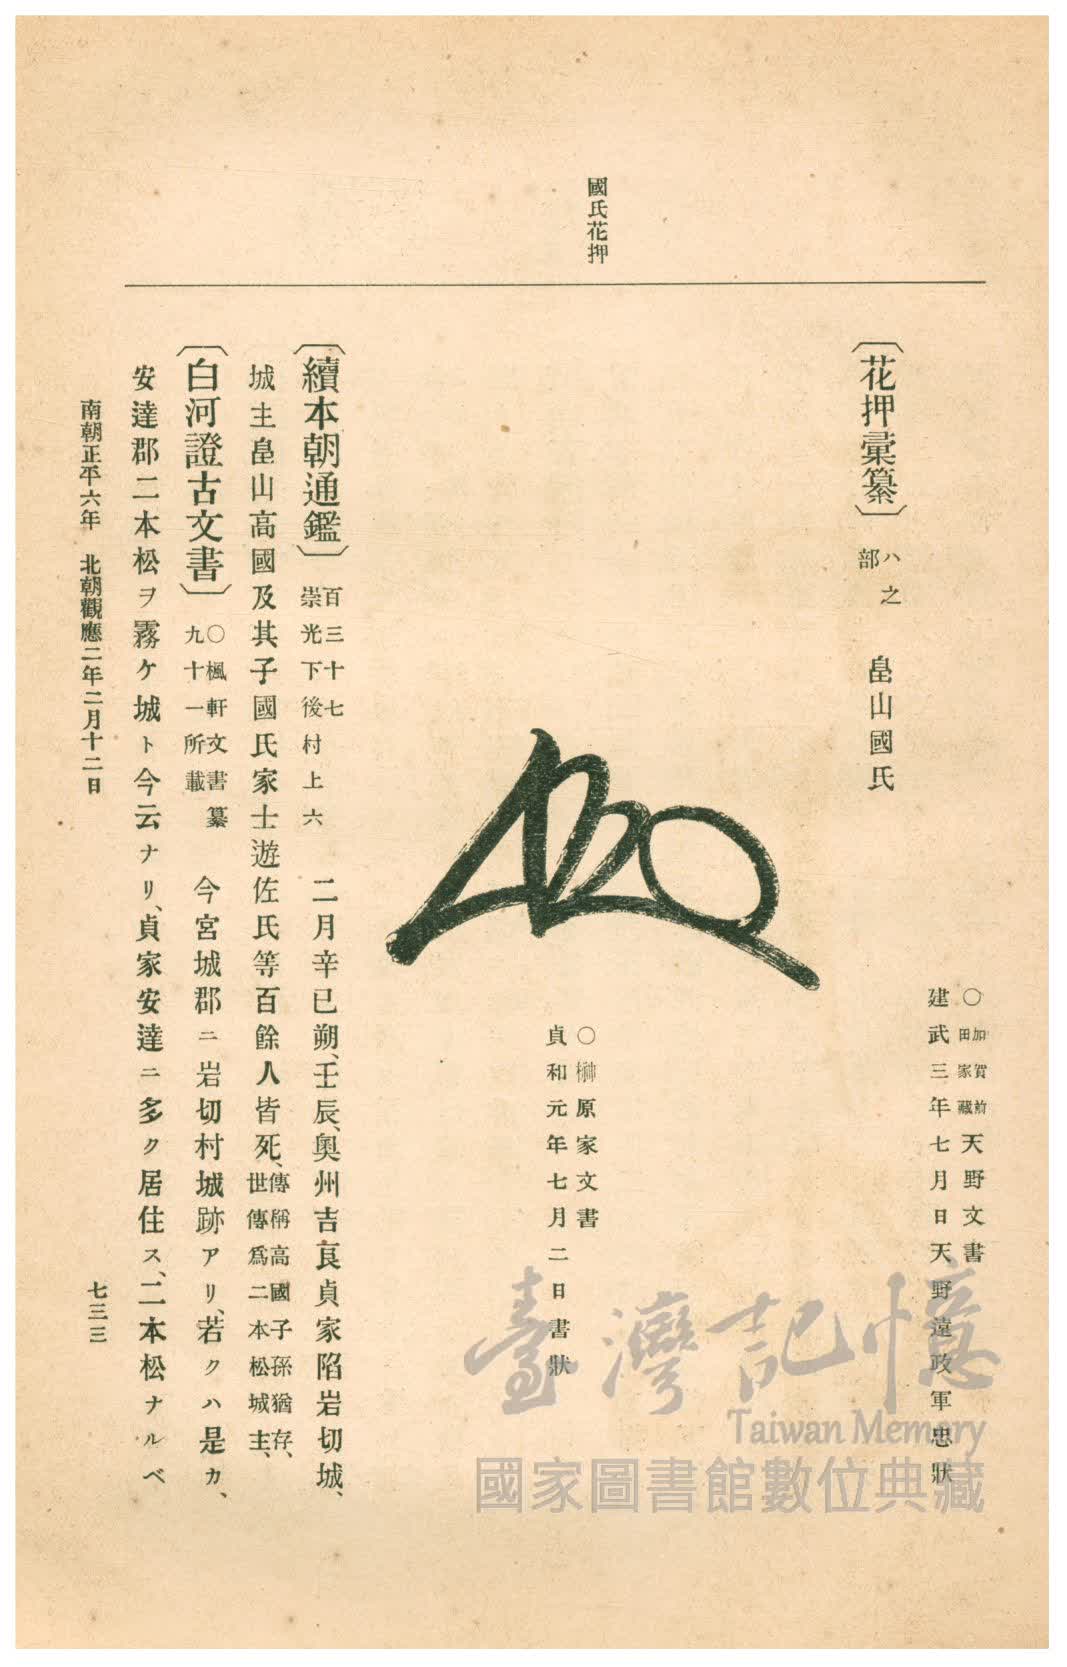 國氏花押
〔花押彙纂〕ハ之部 畠山國氏
○加賀前田家藏天野文書
建武三年七月日天野遠政軍忠狀
○榊原家文書
貞和元年七月二日書狀
〔續本朝通鑑〕百三十七崇光下後村上六 二月辛巳朔、壬辰、奧州吉良貞家陷岩切城、
城主畠山高國及其子國氏家士遊佐氏等百餘人皆死、傳稱高國子孫猶存、世傳爲二本松城主、
〔白河證古文書〕○楓軒文書纂九十一所載 今宮城郡ニ岩切村城跡アリ、若クハ是カ、
安達郡二本松ヲ霧ケ城ト今云ナリ、貞家安達ニ多ク居住ス、二本松ナルベ
南朝正平六年 北朝觀應二年二月十二日
七三三
臺灣記憶
Taiwan Memory
國家圖書館數位典藏